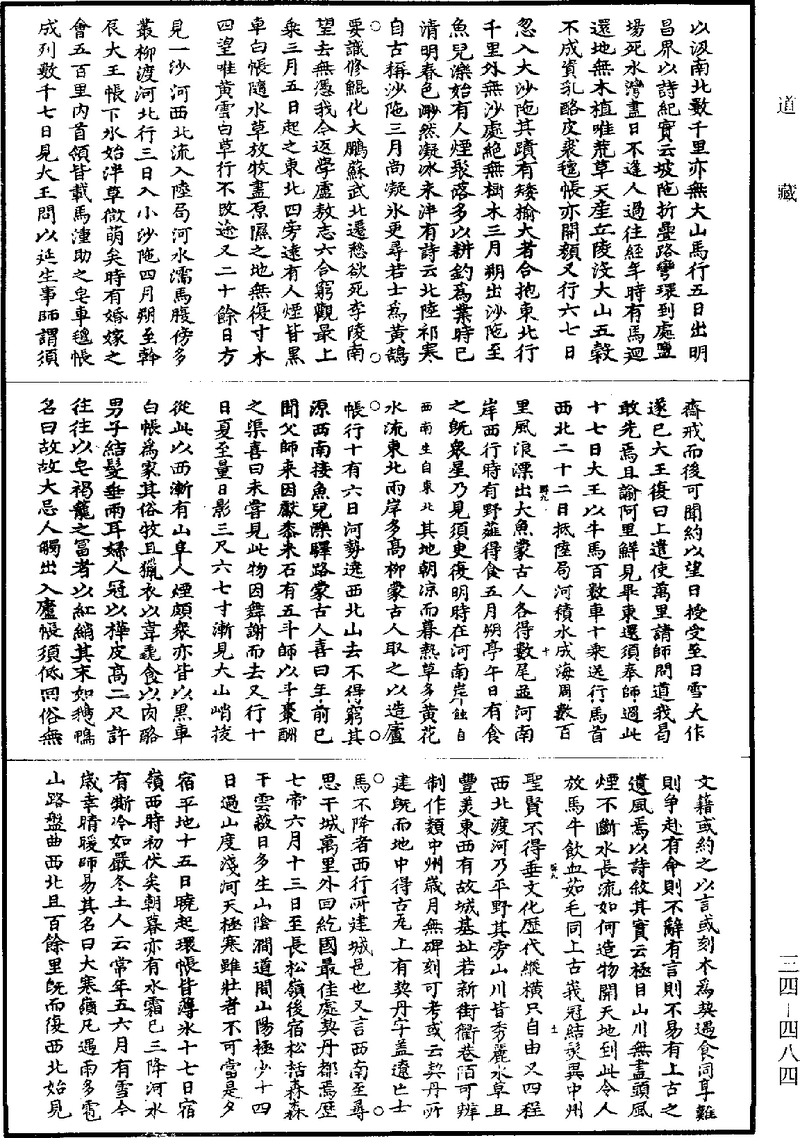 道藏
以汲南北數千里亦無大山馬行五日出明
昌界以詩紀實云坡陁折疊路彎環到處鹽
場死水灣盡日不逢人過往經年時有馬迴
還地無木植唯荒草天産丘陵沒大山五穀
不成資乳酪皮裘氊帳亦開顏又行六七日
忽入大沙陁其磧有矮榆大者合抱東北行
千里外無沙處絕無樹木三月朔出沙陁至
魚兒濼始有人煙聚落多以耕釣爲業時已
清明春色渺然凝冰未泮有詩云北陸祁寒
自古稱沙陁三月尚凝冰更尋若士爲黃鵠
要識修鯤化大鵬蘇武北遷愁欲死李陵南
望去無憑我今返學盧敖志六合窮觀最上
乘三月五日起之東北四旁遠有人煙皆黑
車白帳隨水草放牧盡原隰之地無復寸木
四望唯黃雲白草行不改途又二十餘日方
見一沙河西北流入陸局河水濡馬腹傍多
叢柳渡河北行三日入小沙陁四月朔至斡
辰大王帳下冰始泮草微萌矣時有婚嫁之
會五百里內首領皆載馬湩助之皂車氊帳
成列數千七日見大王問以延生事師謂須
齋戒而後可聞約以望日授受至日雪大作
遂已大王復曰上遣使萬里請師問道我曷
敢先焉且諭阿里鮮見畢東還須奉師過此
十七日大王以牛馬百數車十乘送行馬首
西北二十二日抵陸局河積水成海周數百
里風浪漂出大魚蒙古人各得數尾並河南
岸西行時有野薤得食五月朔亭午日有食
之旣衆星乃見須臾復明時在河南岸蝕自
西南生自東北其地朝涼而暮熱草多黃花
水流東北兩岸多高柳蒙古人取之以造廬
帳行十有六日河勢遶西北山去不得窮其
源西南接魚兒濼驛路蒙古人喜曰年前已
聞父師來因獻黍米石有五斗師以斗棗酬
之渠喜曰未嘗見此物因舞謝而去又行十
日夏至量日影三尺六七寸漸見大山峭拔
從此以西漸有山阜人煙頗衆亦皆以黑車
白帳爲家其俗牧且獵衣以韋毳食以肉酪
男子結髮垂兩耳婦人冠以樺皮高二尺許
往往以皂褐籠之富者以紅綃其末如鵝鴨
名曰故故大忌人觸出入廬帳須低回俗無
文籍或約之以言或刻木爲契遇食同享難
則爭赴有命則不辭有言則不易有上古之
遺風焉以詩敘其實云極目山川無盡頭風
煙不斷水長流如何造物開天地到此令人
放馬牛飲血茹毛同上古峩冠結髮異中州
聖賢不得垂文化歷代縱橫只自由又四程
西北渡河乃平野其旁山川皆秀麗水草且
豐美東西有故城基址若新街衢巷陌可辨
制作類中州歲月無碑刻可考或云契丹所
建旣而地中得古瓦上有契丹字蓋遼亡士
馬不降者西行所建城邑也又言西南至尋
思干城萬里外回紇國最佳處契丹都焉歷
七帝六月十三日至長松嶺後宿松栝森森
干雲蔽日多生山陰澗道間山陽極少十四
日過山度淺河天極寒雖壯者不可當是夕
宿平地十五日曉起環帳皆薄冰十七日宿
嶺西時初伏矣朝暮亦有冰霜已三降河水
有澌冷如嚴冬土人云常年五六月有雪今
歲幸晴暖師易其名曰大寒嶺凡遇雨多雹
山路盤曲西北且百餘里旣而復西北始見
三四－四八四